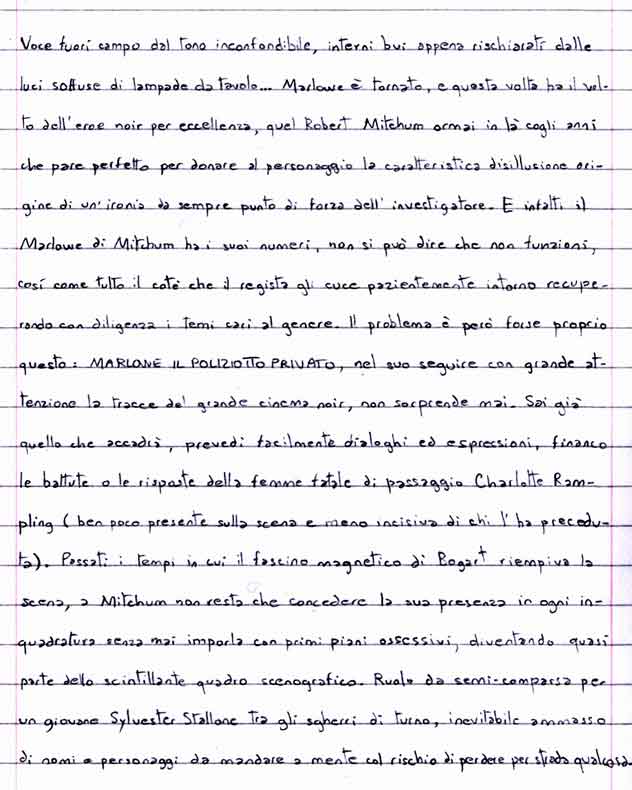 Voce fuori campo dal tono inconfondibile, interni bui appena rischiarati dalle
luci soffuse di lampade da tavolo... Marlowe è tornato, e questa volta ha il vol-
to dell'eroe noir per eccellenza, quel Robert Mitchum ormai in là cogli anni
che pare perfetto per donare al personaggio la caratteristica disillusione ori-
gine di un'ironia da sempre punto di forza dell'investigatore. E infatti il
Marlowe di Mitchum ha i suoi numeri, non si può dire che non funzioni,
così come tutto il coté che il regista gli cuce pazientemente intorno recupe-
rando con diligenza i temi cari al genere. Il problema è però forse proprio
questo: MARLOWE IL POLIZIOTTO PRIVATO, nel suo seguire con grande at-
tenzione la tracce del grande cinema noir, non sorprende mai. Sai già
quello che accadrà, prevedi facilmente dialoghi ed espressioni, financo
le battute o le risposte della femme fatale di passaggio Charlotte Ram-
pling (ben poco presente sulla scena e meno incisiva di chi l'ha precedu-
ta). Passati i tempi in cui il fascino magnetico di Bogart riempiva la
scena, a Mitchum non resta che concedere la sua presenza in ogni in-
quadratura senza mai imporla con primi piani ossessivi, diventando quasi
parte dello scintillante quadro scenografico. Ruolo da semi-comparsa per
un giovane Sylvester Stallone tra gli sgherri di turno, inevitabile ammasso
di nomi e personaggi da mandare a mente col rischio di perdere per strada qualcosa.